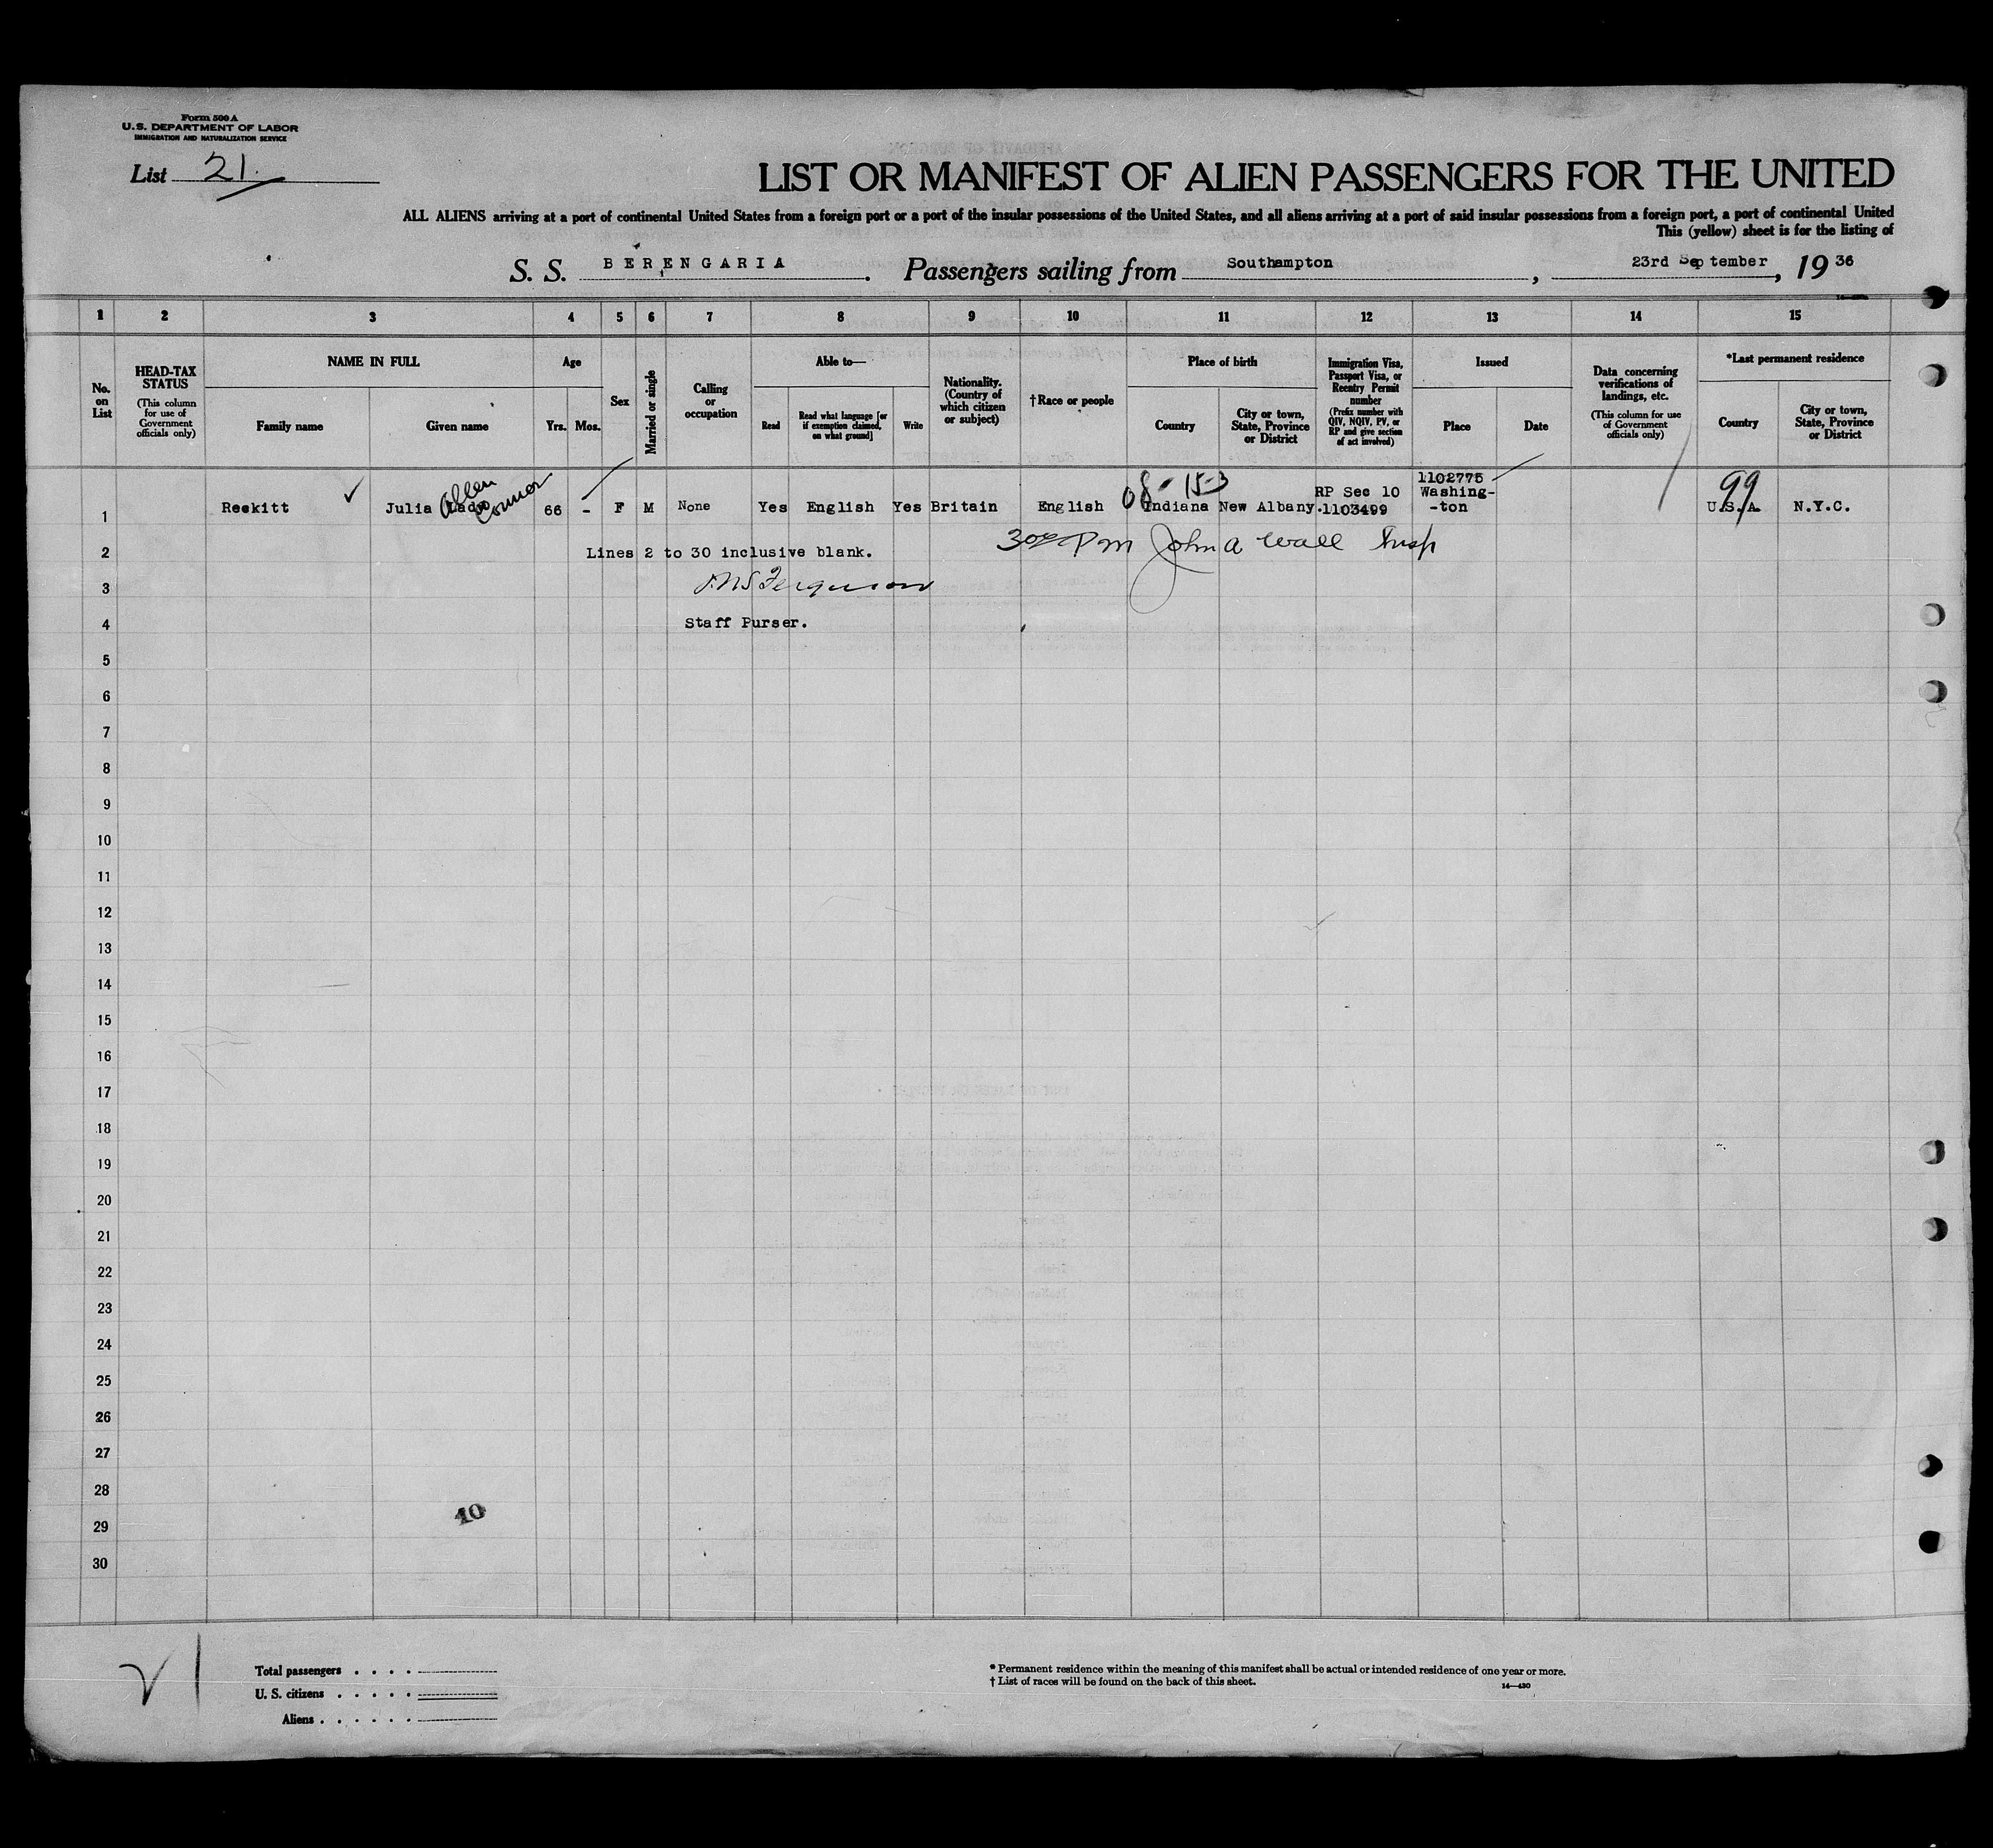 Form 500 A
U.S. DEPARTMENT OF LABOR
IMMIGRATION AND NATURALIZATION SERVICE
List 21.
LIST OR MANIFEST OF ALIEN PASSENGERS FOR THE UNITED
ALL ALIENS arriving at a port of continental United States from a foreign port or a port of the insular possessions of the United States, and all aliens arriving at a port of said insular possessions from a foreign port, a port of continental United
This (yellow) sheet is for the listing of
S. S. BERENGARIA. Passengers sailing from Southampton, 23rd September, 19 36
1 2 3 4 5 6 7 8 9 10 11 12 13 14 15
No. on List
HEAD-TAX STATUS
(This column for use of Government officials only)
NAME IN FULL
Family name Given name
Age
Yrs. Mos.
Sex
Married or single
Calling or occupation
Able to—
Read Read what language [or if exemption claimed, on what ground] Write
Nationality. (Country of which citizen or subject)
†Race or people
Place of birth
Country City or town, State, Province or District
Immigration Visa, Passport Visa, or Reentry Permit number
(Prefix number with QIV, NQIV, PV, or RP and give section of act involved)
Issued
Place Date
Data concerning verifications of landings, etc.
(This column for use of Government officials only)
*Last permanent residence
Country City or town, State, Province or District
Allen Connor
08-153
99
1102775
1 Reckitt Julia 66 - F M None Yes English Yes Britain English Indiana New Albany. RP Sec 10 1103499 Washing-
-ton U.S.A. N.Y.C.
2 Lines 2 to 30 inclusive blank. 300 PM John A Wall Insp
3 Ferguson
4 Staff Purser.
5
6
7
8
9
10
11
12
13
14
15
16
17
18
19
20
21
22
23
24
25
26
27
28
29
30
10
21
Total passengers . . . .
U. S. citizens . . . . .
Aliens . . . . . .
* Permanent residence within the meaning of this manifest shall be actual or intended residence of one year or more.
† List of races will be found on the back of this sheet.
14—430